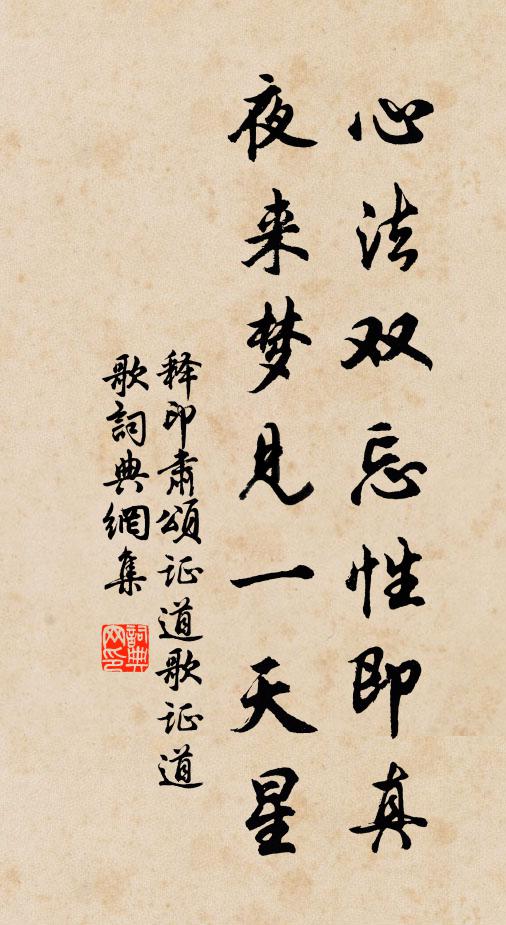 心法双忘性即真
夜来梦见一天星
释印肃颂证道歌证道
歌词典網集
詞典
网印